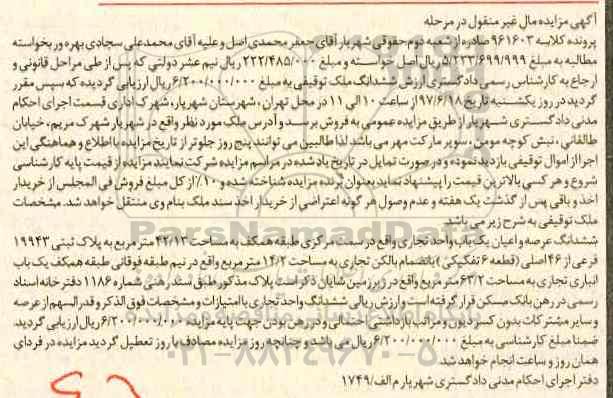 آگهی مزایده مال غیر منقول در مرحله
پرونده کلاسه ۹۶۱۶۰۳ صادره از شعبه دوم حقوقی شهریار آقای جعفر محمدی اصل و علیه آقای محمدعلی سجادی بهره ور بخواسته
مطالبه به مبلغ ۵/۲۳۳/۶۹۹/۹۹۹ ریال اصل خواسته و مبلغ ۲۲۲/۴۸۵/۰۰۰ ریال نیم عشر دولتی که پس از طی مراحل قانونی و
ارجاع به کارشناس رسمی دادگستری ارزش ششدانگ ملک توقیفی به مبلغ ۶/۲۰۰/۰۰۰/۰۰۰ ریال ارزیابی گردیده که سپس مقرر
گردید در روز یکشنبه تاریخ ۹۷/۶/۱۸ از ساعت ۱۰ الی ۱۱ در محل تهران ، شهرستان شهریار، شهرک اداری قسمت اجرای احکام
مدنی دادگستری شهریار از طریق مزایده عمومی به فروش برسد و آدرس ملک مورد نظر واقع در شهریار شهرک مریم، خیابان
طالقانی ، نبش کوچه مومن ، سوپر مارکت مهر می باشد لذا طالبین می توانند پنج روز جلوتر از تاریخ مزایده با اطلاع و هماهنگی این
اجرا از اموال توقیفی بازدید نموده و در صورت تمایل در تاریخ یاد شده در مراسم مزایده شرکت نمایند مزایده از قیمت پایه کارشناسی
شروع و هر کسی بالاترین قیمت را پیشنهاد نماید بعنوان برنده مزایده شناخته شده و ۱۰٪ از کل مبلغ فروش فی المجلس از خریدار
اخذ و باقی پس از گذشت یک هفته و عدم وصول هر گونه اعتراضی از خریدار اخذ سند ملک بنام وی منتقل خواهد شد. مشخصات
ملک توقیفی به شرح زیر می باشد
ششدانگ عرصه و اعیان یک باب واحد تجاری واقع در سمت مرکزی طبقه همکف به مساحت ۴۲/۱۳ متر مربع به پلاک ثبتی ۱۹۹۴۳
فرعی از ۴۶ اصلی (قطعه ۶ تفکیکی) بانضمام بالکن تجاری به مساحت ۱۴/۲ متر مربع واقع در نیم طبقه فوقانی طبقه همکف یک باب
انباری تجاری به مساحت ۶۳/۲ متر مربع واقع در زیرزمین شایان ذکر است پلاک مذکور طبق سند رهنی شماره ۱۱۸۶ دفترخانه اسناد
رسمی در رهن بانک مسکن قرار گرفته است و ارزش ریالی ششدانگ واحد تجاری با امتیازات و مشخصات فوق الذکر و قدرالسهم از عرصه
و سایر مشترکات بدون کسر دیون و مراتب بازداشتی احتمالی و در رهن بودن جهت پایه مزایده ۶/۲۰۰/۰۰۰/۰۰۰ ریال ارزیابی گردید.
ضمنا مبلغ کارشناسی به مبلغ ۶/۲۰۰/۰۰۰/۰۰۰ ریال می باشد و چنانچه روز مزایده مصادف با روز تعطیل گردید مزایده در فردای
همان روز و ساعت انجام خواهد شد.
دفتر اجرای احکام مدنی دادگستری شهریار م الف/۱۷۴۹
ParsNamadData
۰۲۱-۸۸۳۴۹۶۷۰-۵